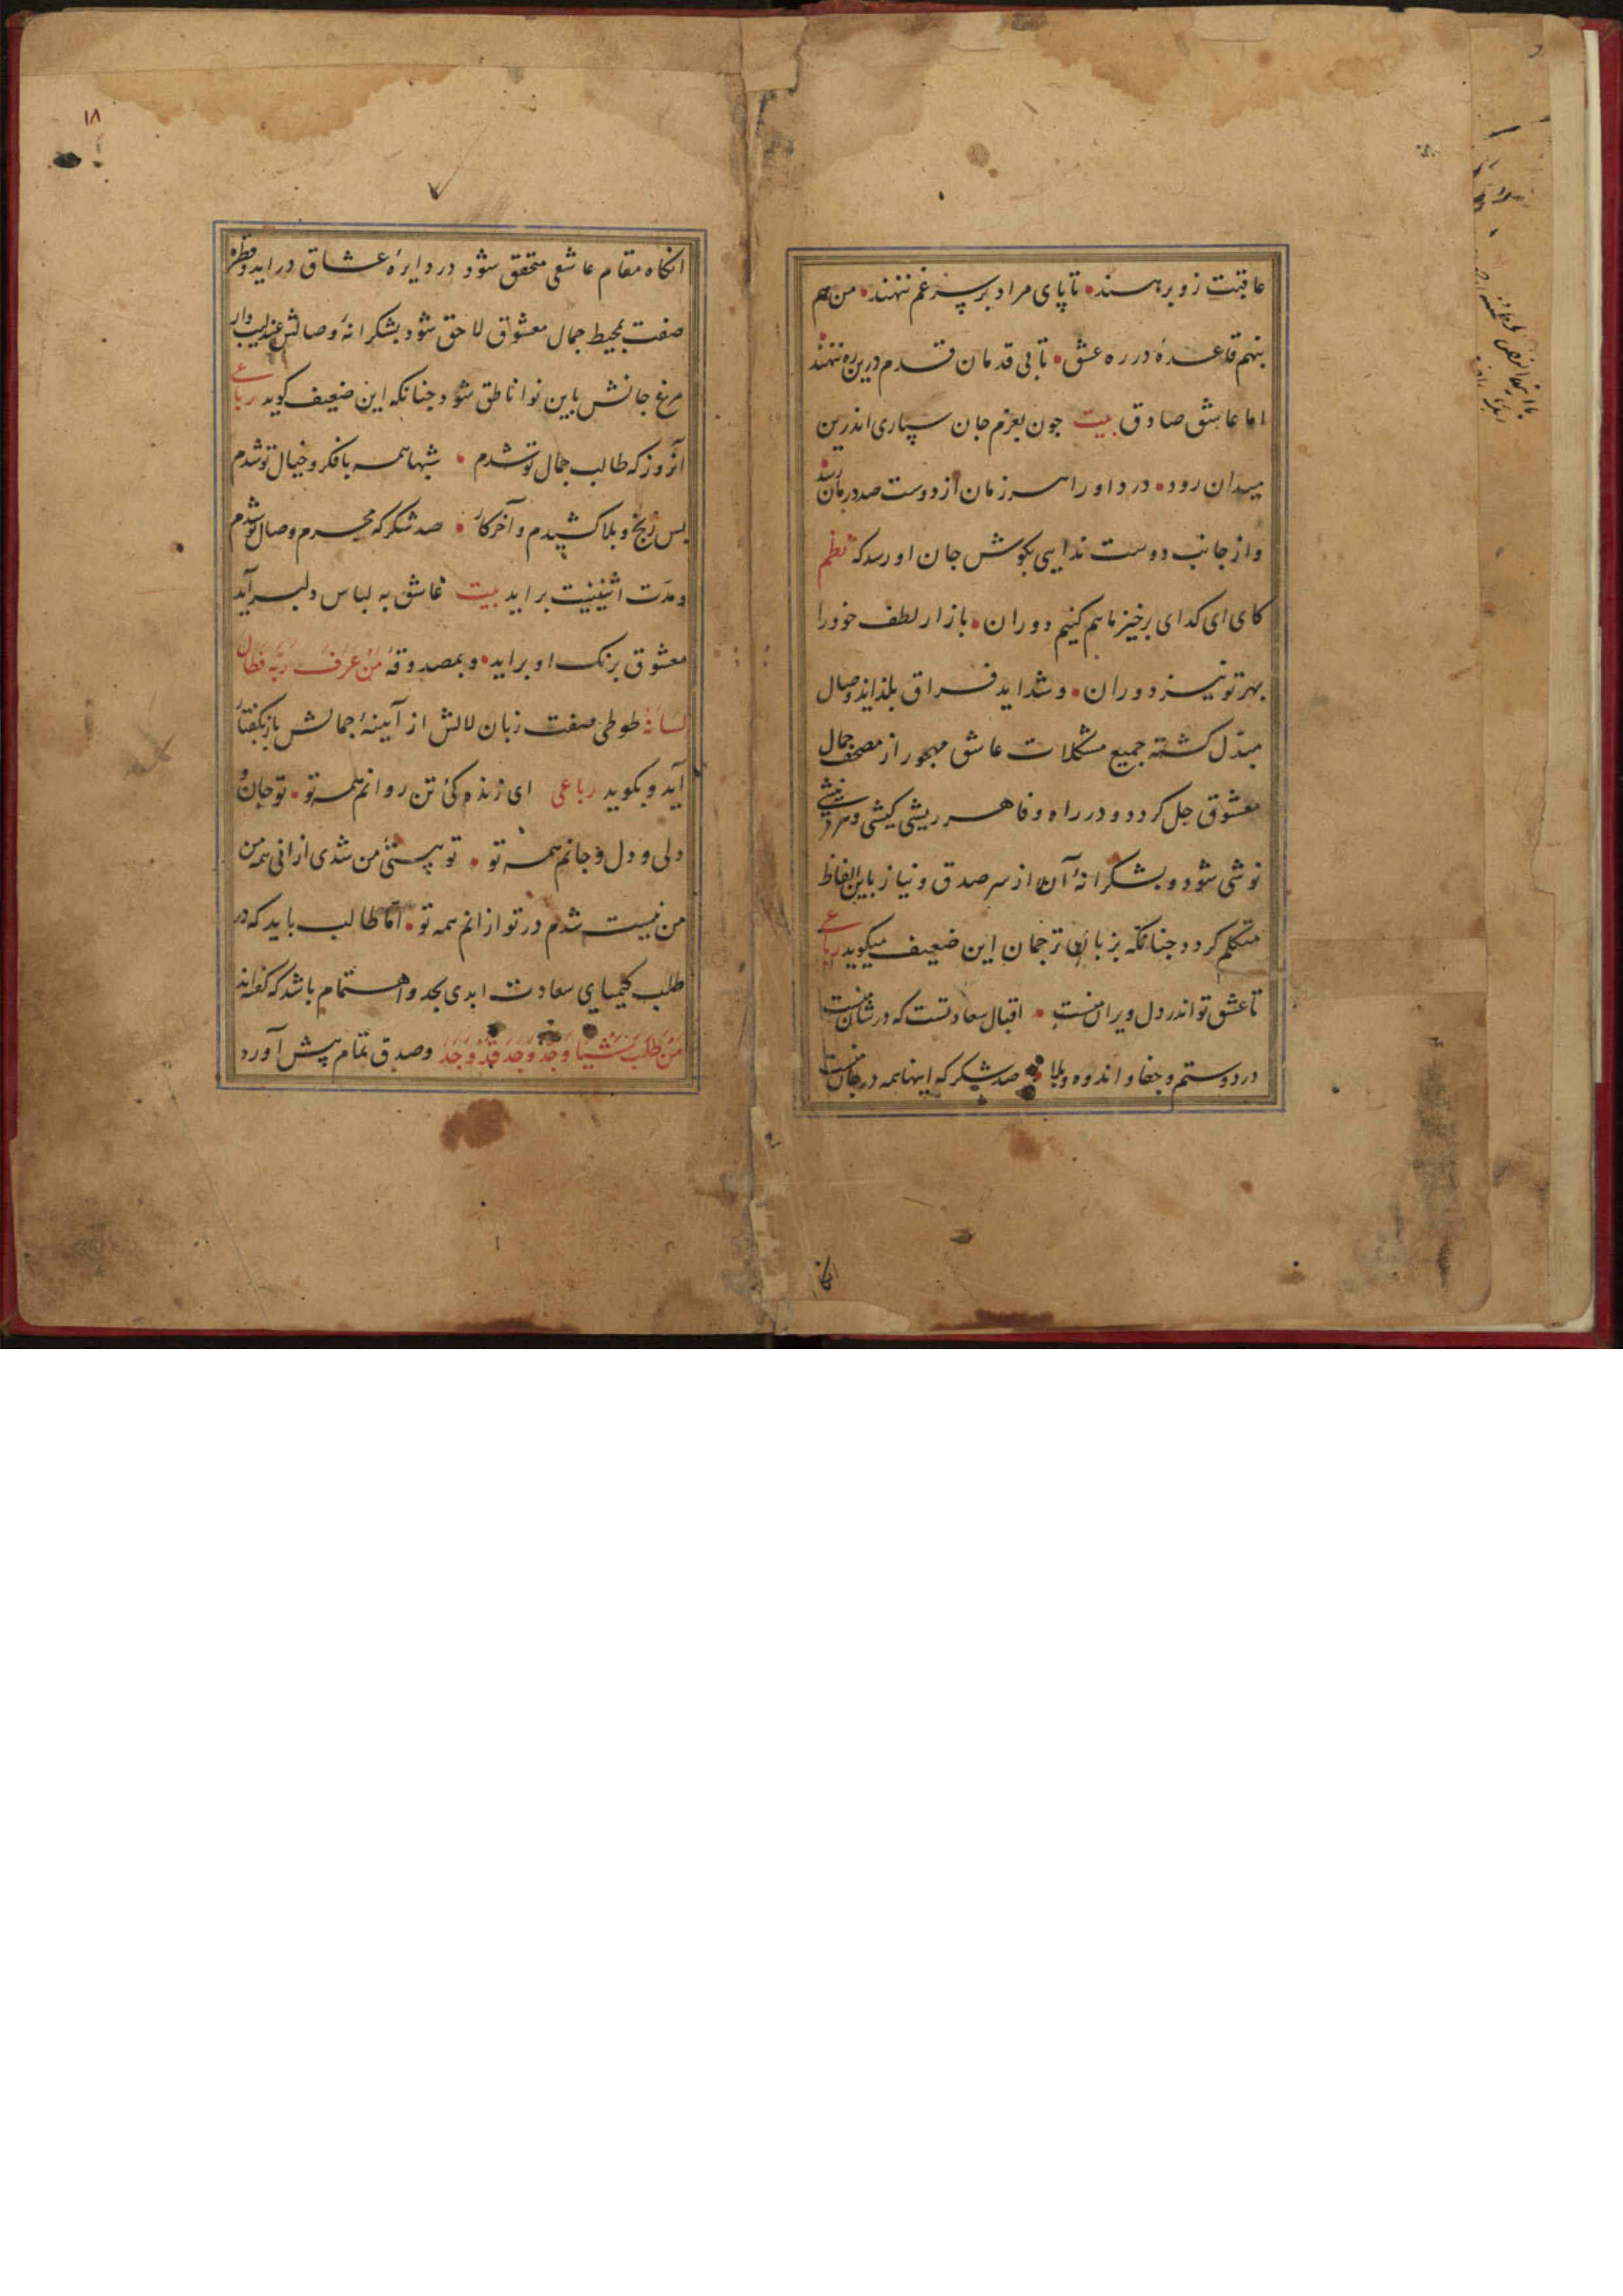 عاقبت زو برهسند تا پای مراد بر سر غم ننهند من هم
بنهم قاعدهٔ در ره عشق تا بی قدمان قدم درین ره ننهند
اما عاشق صادق بیت جون بعزم جان سپاری اندرین
میدان رود درد او را هر زمان از دوست صد درمان رسد
و از جانب دوست ندایی بکوش جان او رسد که نظم
کای ای کدای برخیز ما هم کنیم دوران بازار لطف خود را
بهر تو نیز دوران و شداید فراق بلذاید وصال
مبدل کشته جمیع مشکلات عاشق مهجور از مصحف جمال
معشوق حل کردد و در راه وفا هر ریشی کیشی و هر نیشی
نوشی شود و بشکرانهٔ آن از سر صدق و نیاز باین الفاظ
متکلم کردد جنانکه بزبان ترجمان این ضعیف میکوید رباعی
تا عشق تو اندر دل ویران منست اقبال سعادتست که در شان منست
درد و ستم و جفا و اندوه و بلا صد شکر که اینها همه در جان منست
۱۸
انکاه مقام عاشقی متحقق شود در دایرهٔ عشاق دراید و قطره
صفت بمحیط جمال معشوق لاحق شود بشکرانهٔ وصالش عندلیب وار
مرغ جانش باین نوا ناطق شود جنانکه این ضعیف کوید رباعی
آنروز که طالب جمال تو شدم شبها همه با فکر و خیال تو شدم
بس رنج و بلا کشیدم و آخر کار صد شکر که محرم وصال تو شدم
و مدت اثنینیت براید بیت عاشق به لباس دلبر آید
معشوق برنک او براید و بمصدوقهٔ مَنْ عَرَفَ رَبَّه فَطَالَ
لِسَانُهُ طوطی صفت زبان لالش از آیینهٔ جمالش باز بکفتار
آید و بکوید رباعی ای زنده کئ تن روانم همه تو تو جان و
دلی و دل و جانم همه تو تو هستئ من شدی ازانی همه من
من نیست شدم در تو ازانم همه تو اما طالب باید که در
طلب کیمیای سعادت ابدی بجد و اهتمام باشد که کفته‌اند
مَنْ طَلَبَ شَیْئا وَجَدَّ وَجَدَ وصدق تمام پیش آورد